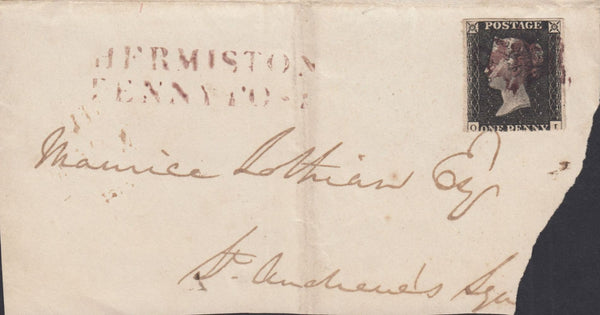 HERMISTON
PENNY PO
POSTAGE
O ONE PENNY I
Maurice Lothian Esq
St. Andrew's Squ